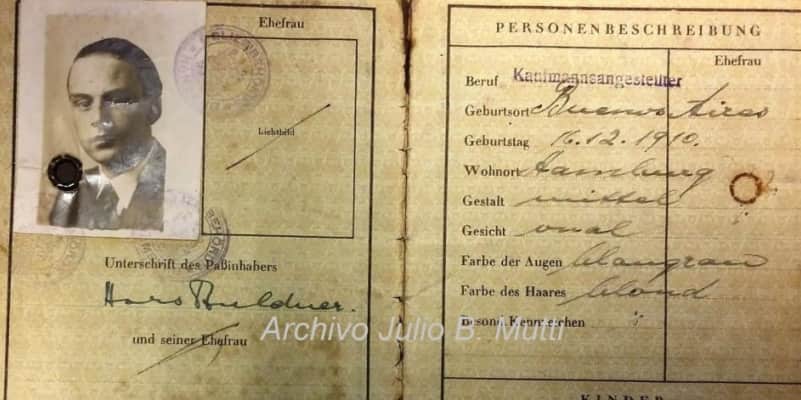 Ehefrau
Lichtbild
Unterschrift des Paßinhabers
und seiner Ehefrau
PERSONENBESCHREIBUNG
Ehefrau
Beruf Kaufmannsangestellter
Geburtsort Buenos Aires
Geburtstag 16.12.1910.
Wohnort Hamburg
Gestalt mittel
Gesicht oval
Farbe der Augen blaugrau
Farbe des Haares blond
Besond. Kennzeichen
KINDER
Archivo Julio B. Mutti